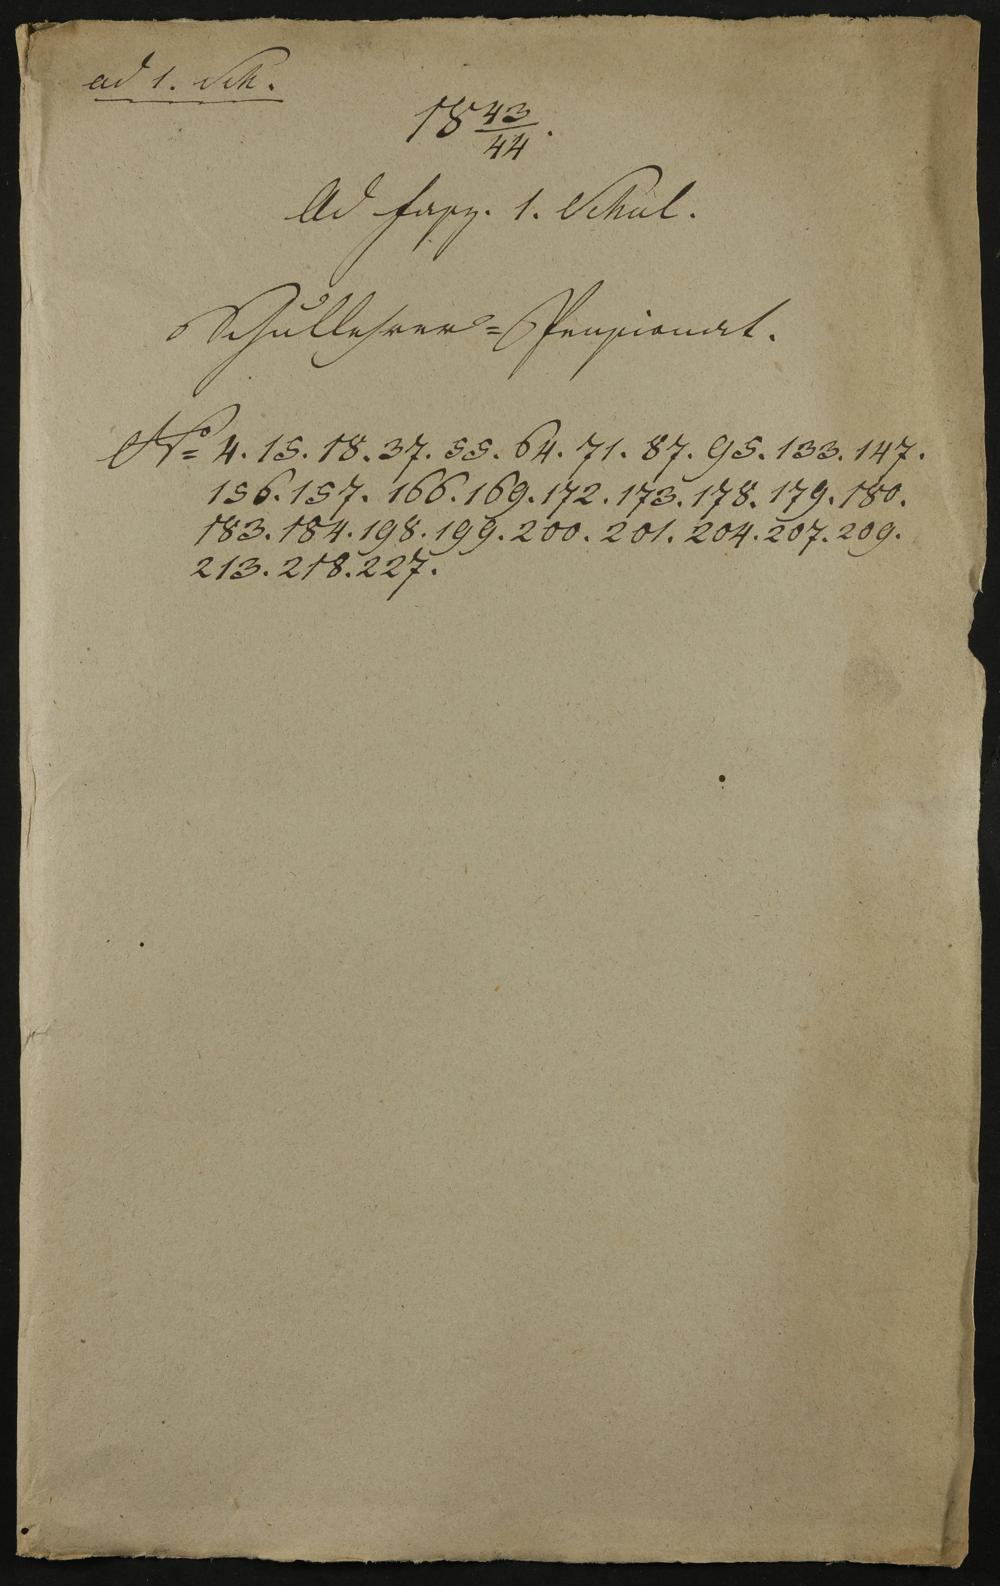 ad 1. Sch.
18 43/44.
Ad fasz. 1. Schul.
Schullehrer=Pensionat.
No 4. 15. 18. 37. 55. 64. 71. 87. 95. 133. 147.
156. 157. 166. 169. 172. 173. 178. 179. 180.
183. 184. 198. 199. 200. 201. 204. 207. 209.
213. 218. 227.